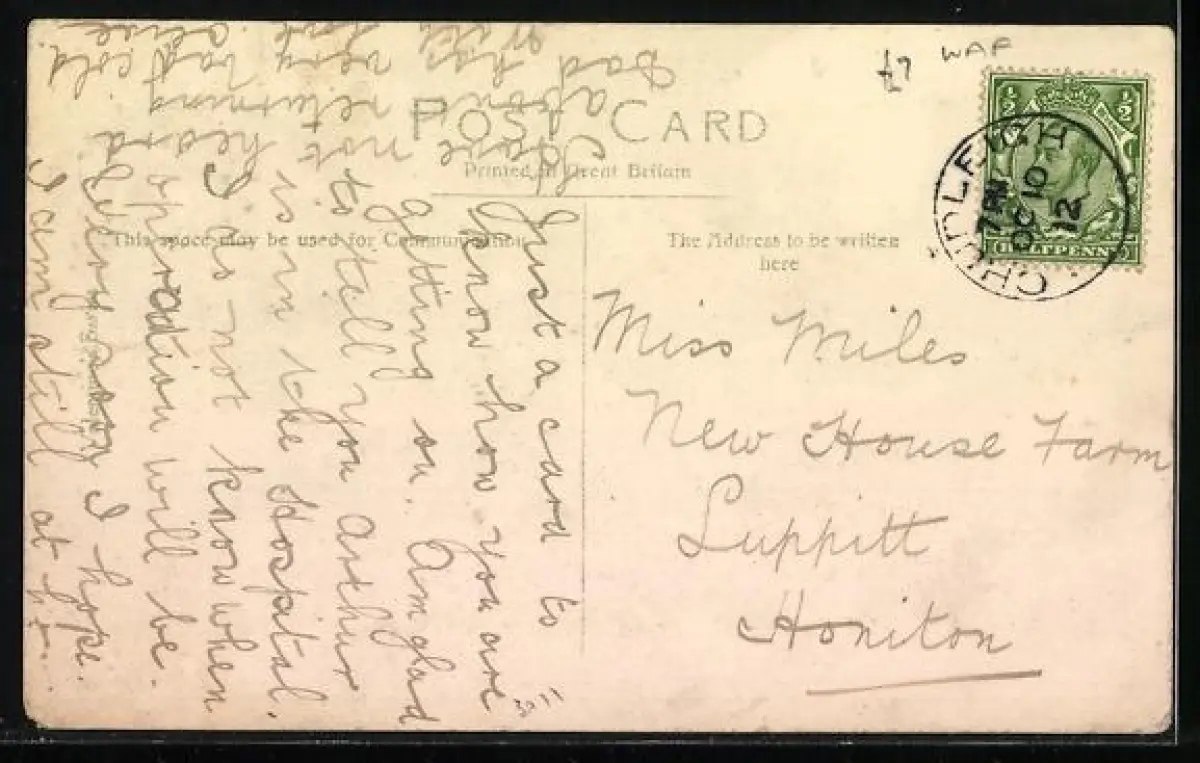 POST CARD
Printed in Great Britain
This space may be used for Communication
The Address to be written
here
£7 WAF
½ ½
HALFPENNY
CHUDLEIGH
7 PM
OC 10
12
Miss Miles
New House Farm
Luppitt
Honiton
Just a card to
know how you are
getting on. Am glad
to tell you Arthur
is in the Hospital.
I do not know when
opration will be.
Very soon I hope.
I am still at
Dad has very bad cold
Have not heard
returning